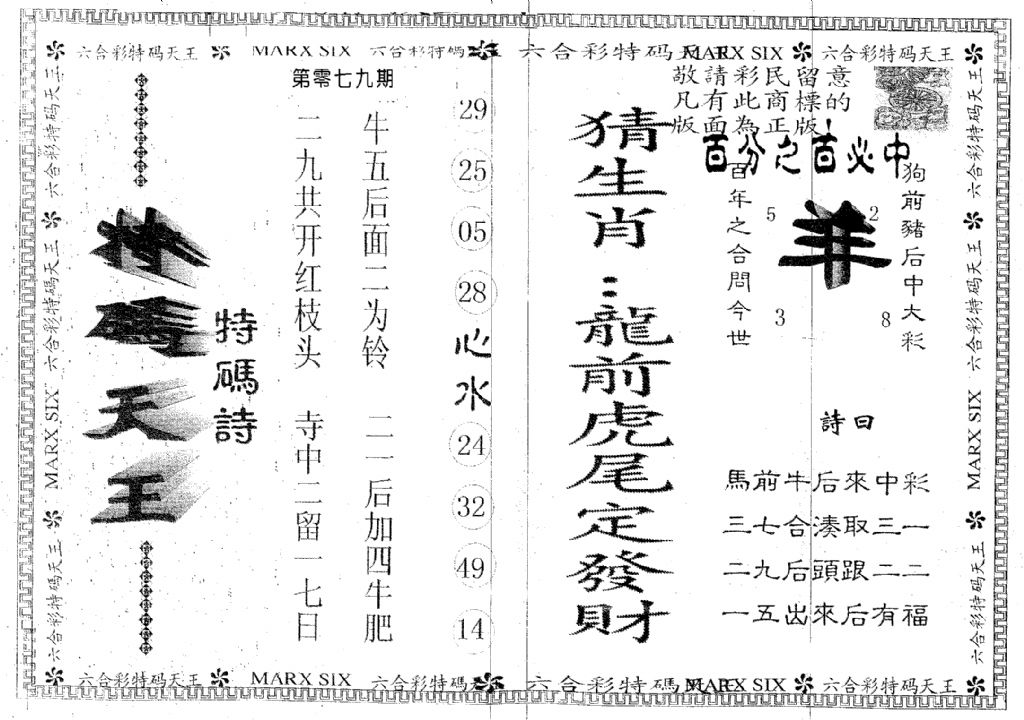 六合彩特码天王 MARX SIX 六合彩特码天王 六合彩特码天王 MARX SIX 六合彩特码天王
第零七九期
敬請彩民留意
凡有此商標的
版面為正版!
百分之百必中
特碼天王
特碼詩
二九共开红枝头 寺中二留一七日
牛五后面二为铃 二一后加四牛肥
29
25
05
28
心水
24
32
49
14
猜生肖:龍前虎尾定發財
百年之合問今世
羊
5
2
3
8
狗前豬后中大彩
詩曰
馬前牛后來中彩
三七合湊取三一
二九后頭跟二二
一五出來后有福
六合彩特码天王
六合彩特码天王
MARX SIX
六合彩特码天王
六合彩特码天王
六合彩特码天王
MARX SIX
六合彩特码天王
六合彩特码天王 MARX SIX 六合彩特码天王 六合彩特码天王 MARX SIX 六合彩特码天王